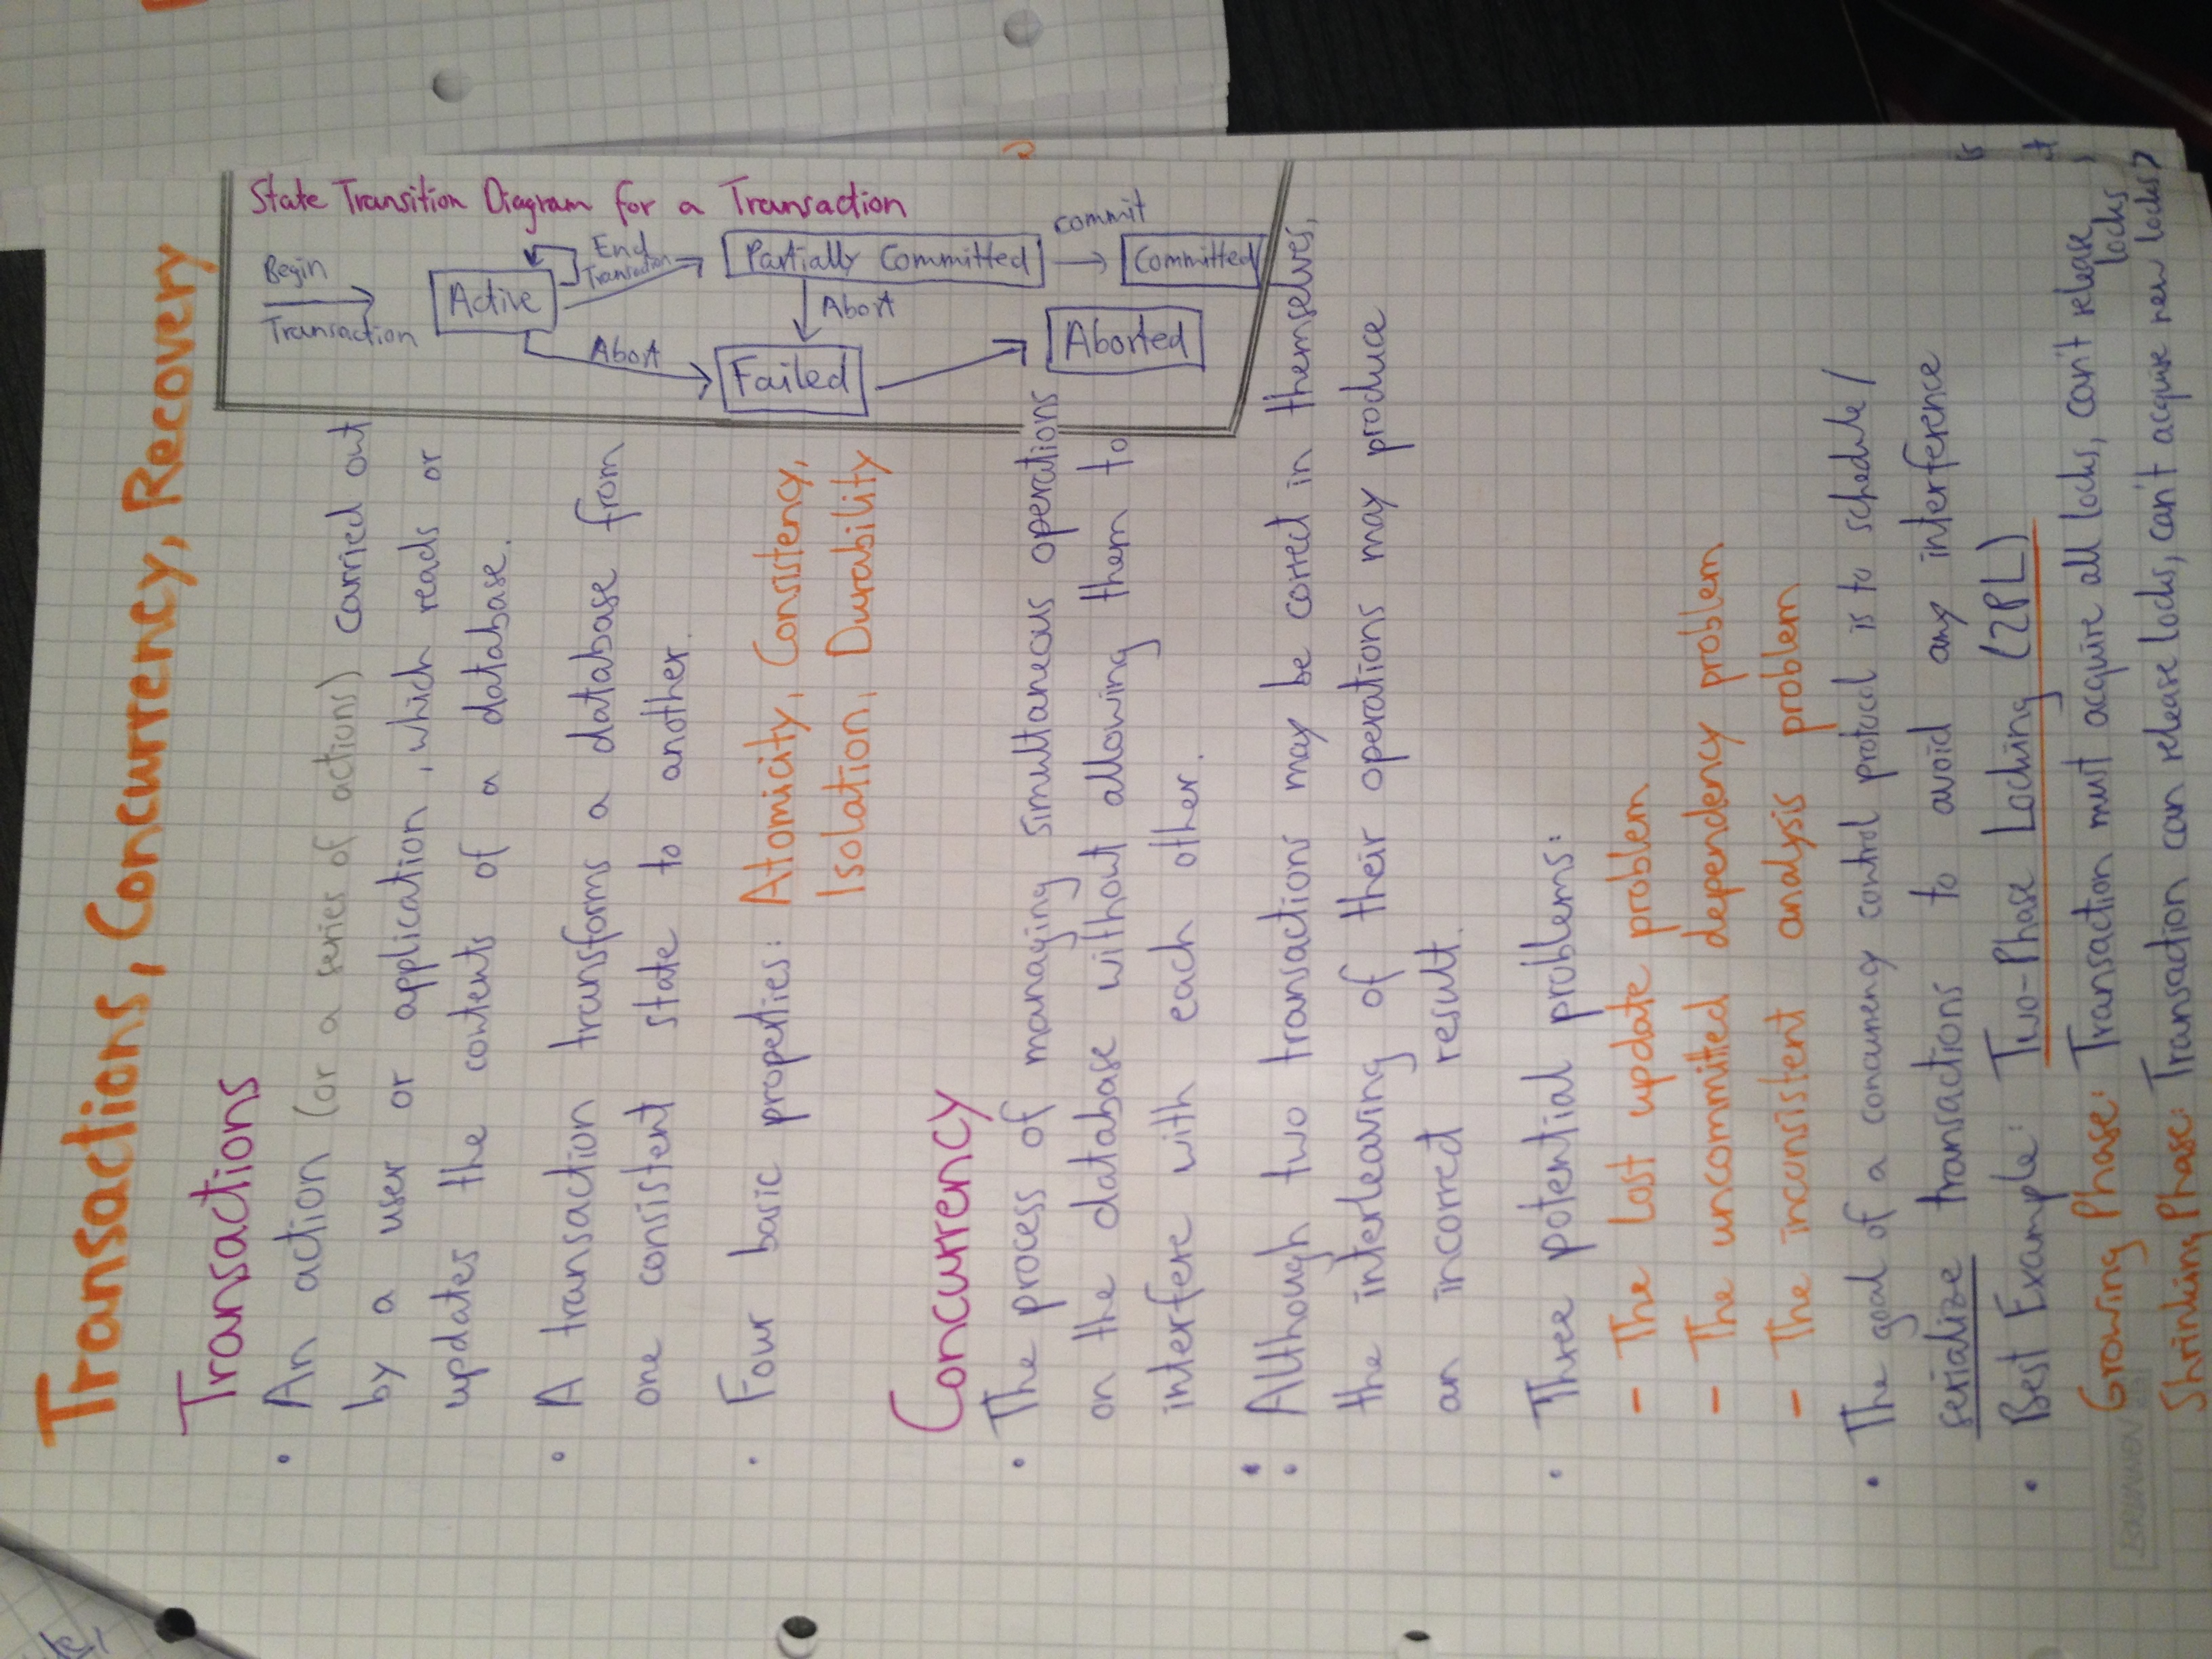 Transactions, Concurrency, Recovery
Transactions
• An action (or a series of actions) carried out
by a user or application, which reads or
updates the contents of a database.
• A transaction transforms a database from
one consistent state to another.
• Four basic properties: Atomicity, Consistency,
Isolation, Durability
State Transition Diagram for a Transaction
Begin
Transaction
Active
End
Transaction
Partially Committed
commit
Committed
Abort
Abort
Failed
Aborted
Concurrency
• The process of managing simultaneous operations
on the database without allowing them to
interfere with each other.
• Although two transactions may be correct in themselves,
the interleaving of their operations may produce
an incorrect result.
• Three potential problems:
- The lost update problem
- The uncommitted dependency problem
- The inconsistent analysis problem
• The goal of a concurrency control protocol is to schedule/
serialize transactions to avoid any interference
• Best Example: Two-Phase Locking (2PL)
Growing Phase: Transaction must acquire all locks, can't release
locks
Shrinking Phase: Transaction can release locks, can't acquire new locks
BRUNNEN